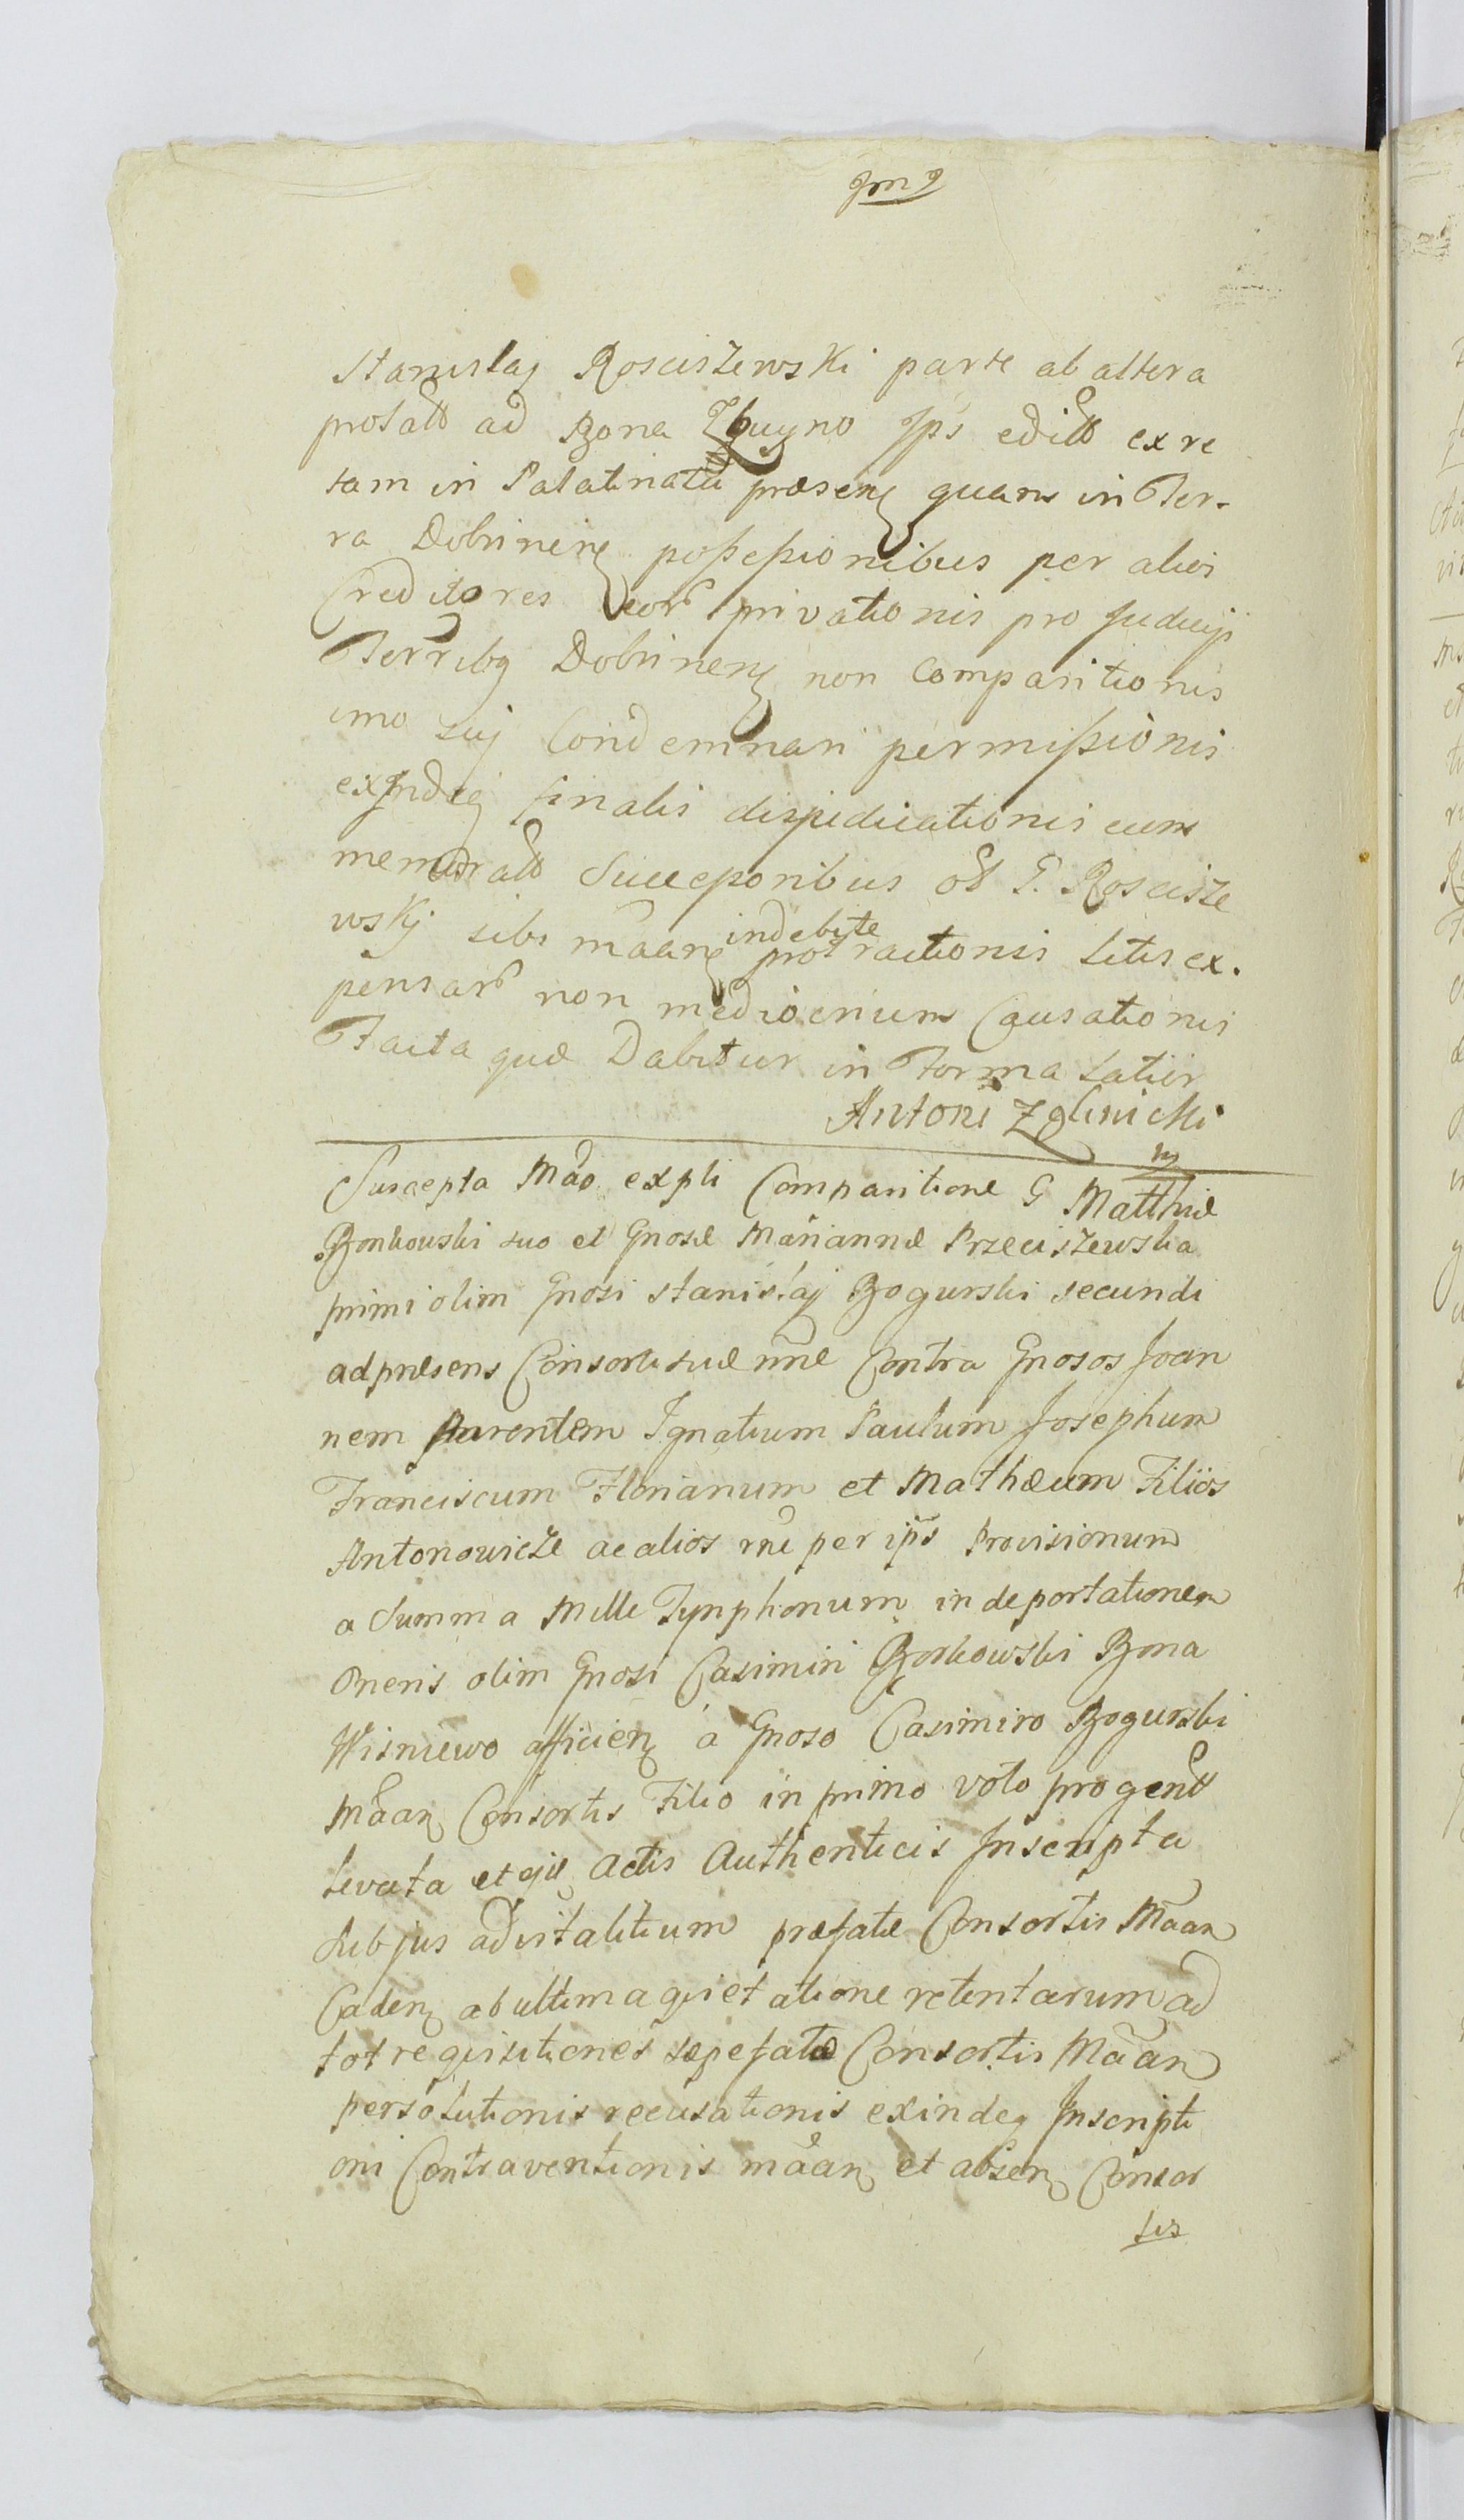 Stanislaj Rosciszewski parte ab altera
ad Bona Zbuyno Ips exre
tam in Palatinatu præsenꝫ quam in Ter-
ra Dobrinenꝫ possessionibus per alios
Creditores eor privationis pro Judicijs
Terribꝫ Dobrinenꝫ non Comparitionis
imo suj Condemnari permissionis
exIndeꝫ finalis disjudicationis cum
Successoribus G. Roscisze
wskj sibi indebite protractionis Litis ex.
pensar non mediocrium Causationis
Facta quæ Dabitur in Forma Latiori
Antoni Zglinicki
Suscepta Mão expli Comparitione G Matthiæ
Borkowski suo et Gnosæ Mariannæ Przeciszewska
primi olim Gnosi Stanislaj Bogurski secundi
ad præsens Consortis suæ nñe Contra Gnosos Joan
nem Parentem Ignatium Paulum Josephum
Franciscum Florianum et Mathæum Filios
Antonowicze ac alios rñe per ips Provisionum
a Summa Mille Tynphonum in deportationem
Oneris olim Gnosi Casimiri Borkowski Bona
Wisniewo afficienꝫ a Gnoso Casimiro Bogurski
Mãanꝫ Consortis Filio in primo voto
Levata et Actis Authenticis Inscripta
Sub jus advitalitium præfatæ Consortis Mãanꝫ
Cadenꝫ ab ultima quietatione retentarum ad
tot requisitiones sæpefatæ Consortis Mãanꝫ
persolutionis recusationis exindeꝫ Inscripti
oni Contraventionis mãanꝫ et absenꝫ Consor
tis